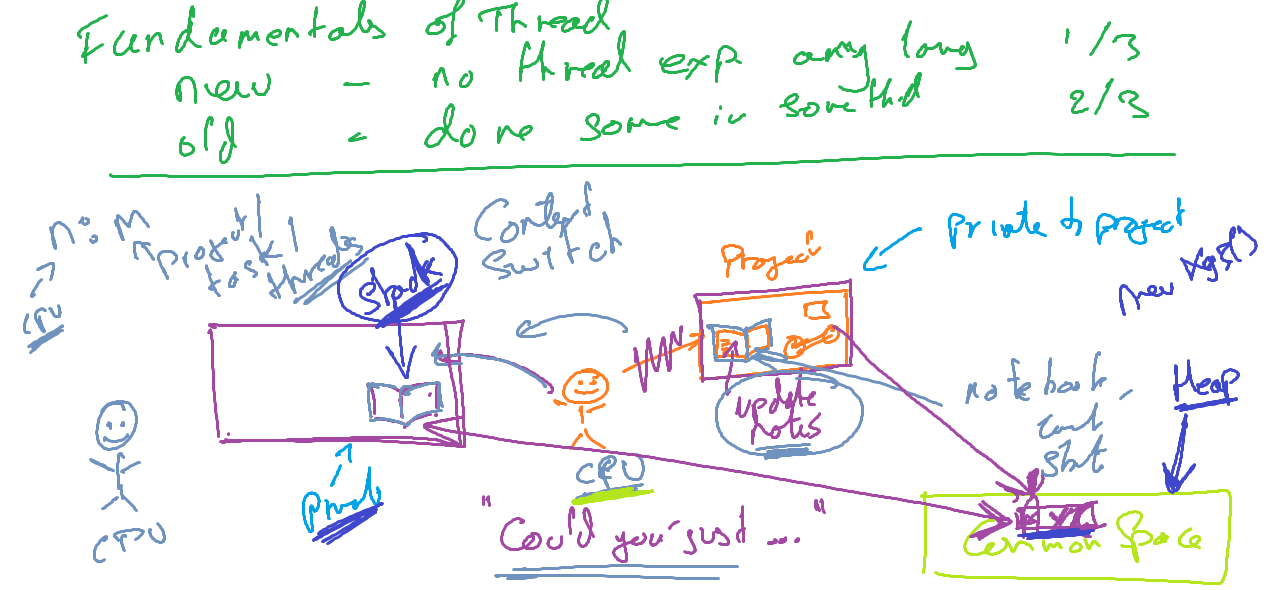 Fundamentals of Thread
new - no thread exp any lang 1/3
old - done some in 2/3
n: M
project/
task/
threads
CPU
Stack
Context
Switch
Project
Private to project
new
notebook
Heap
update
notes
CPU
CPU
"Could you just ... "
Common Space